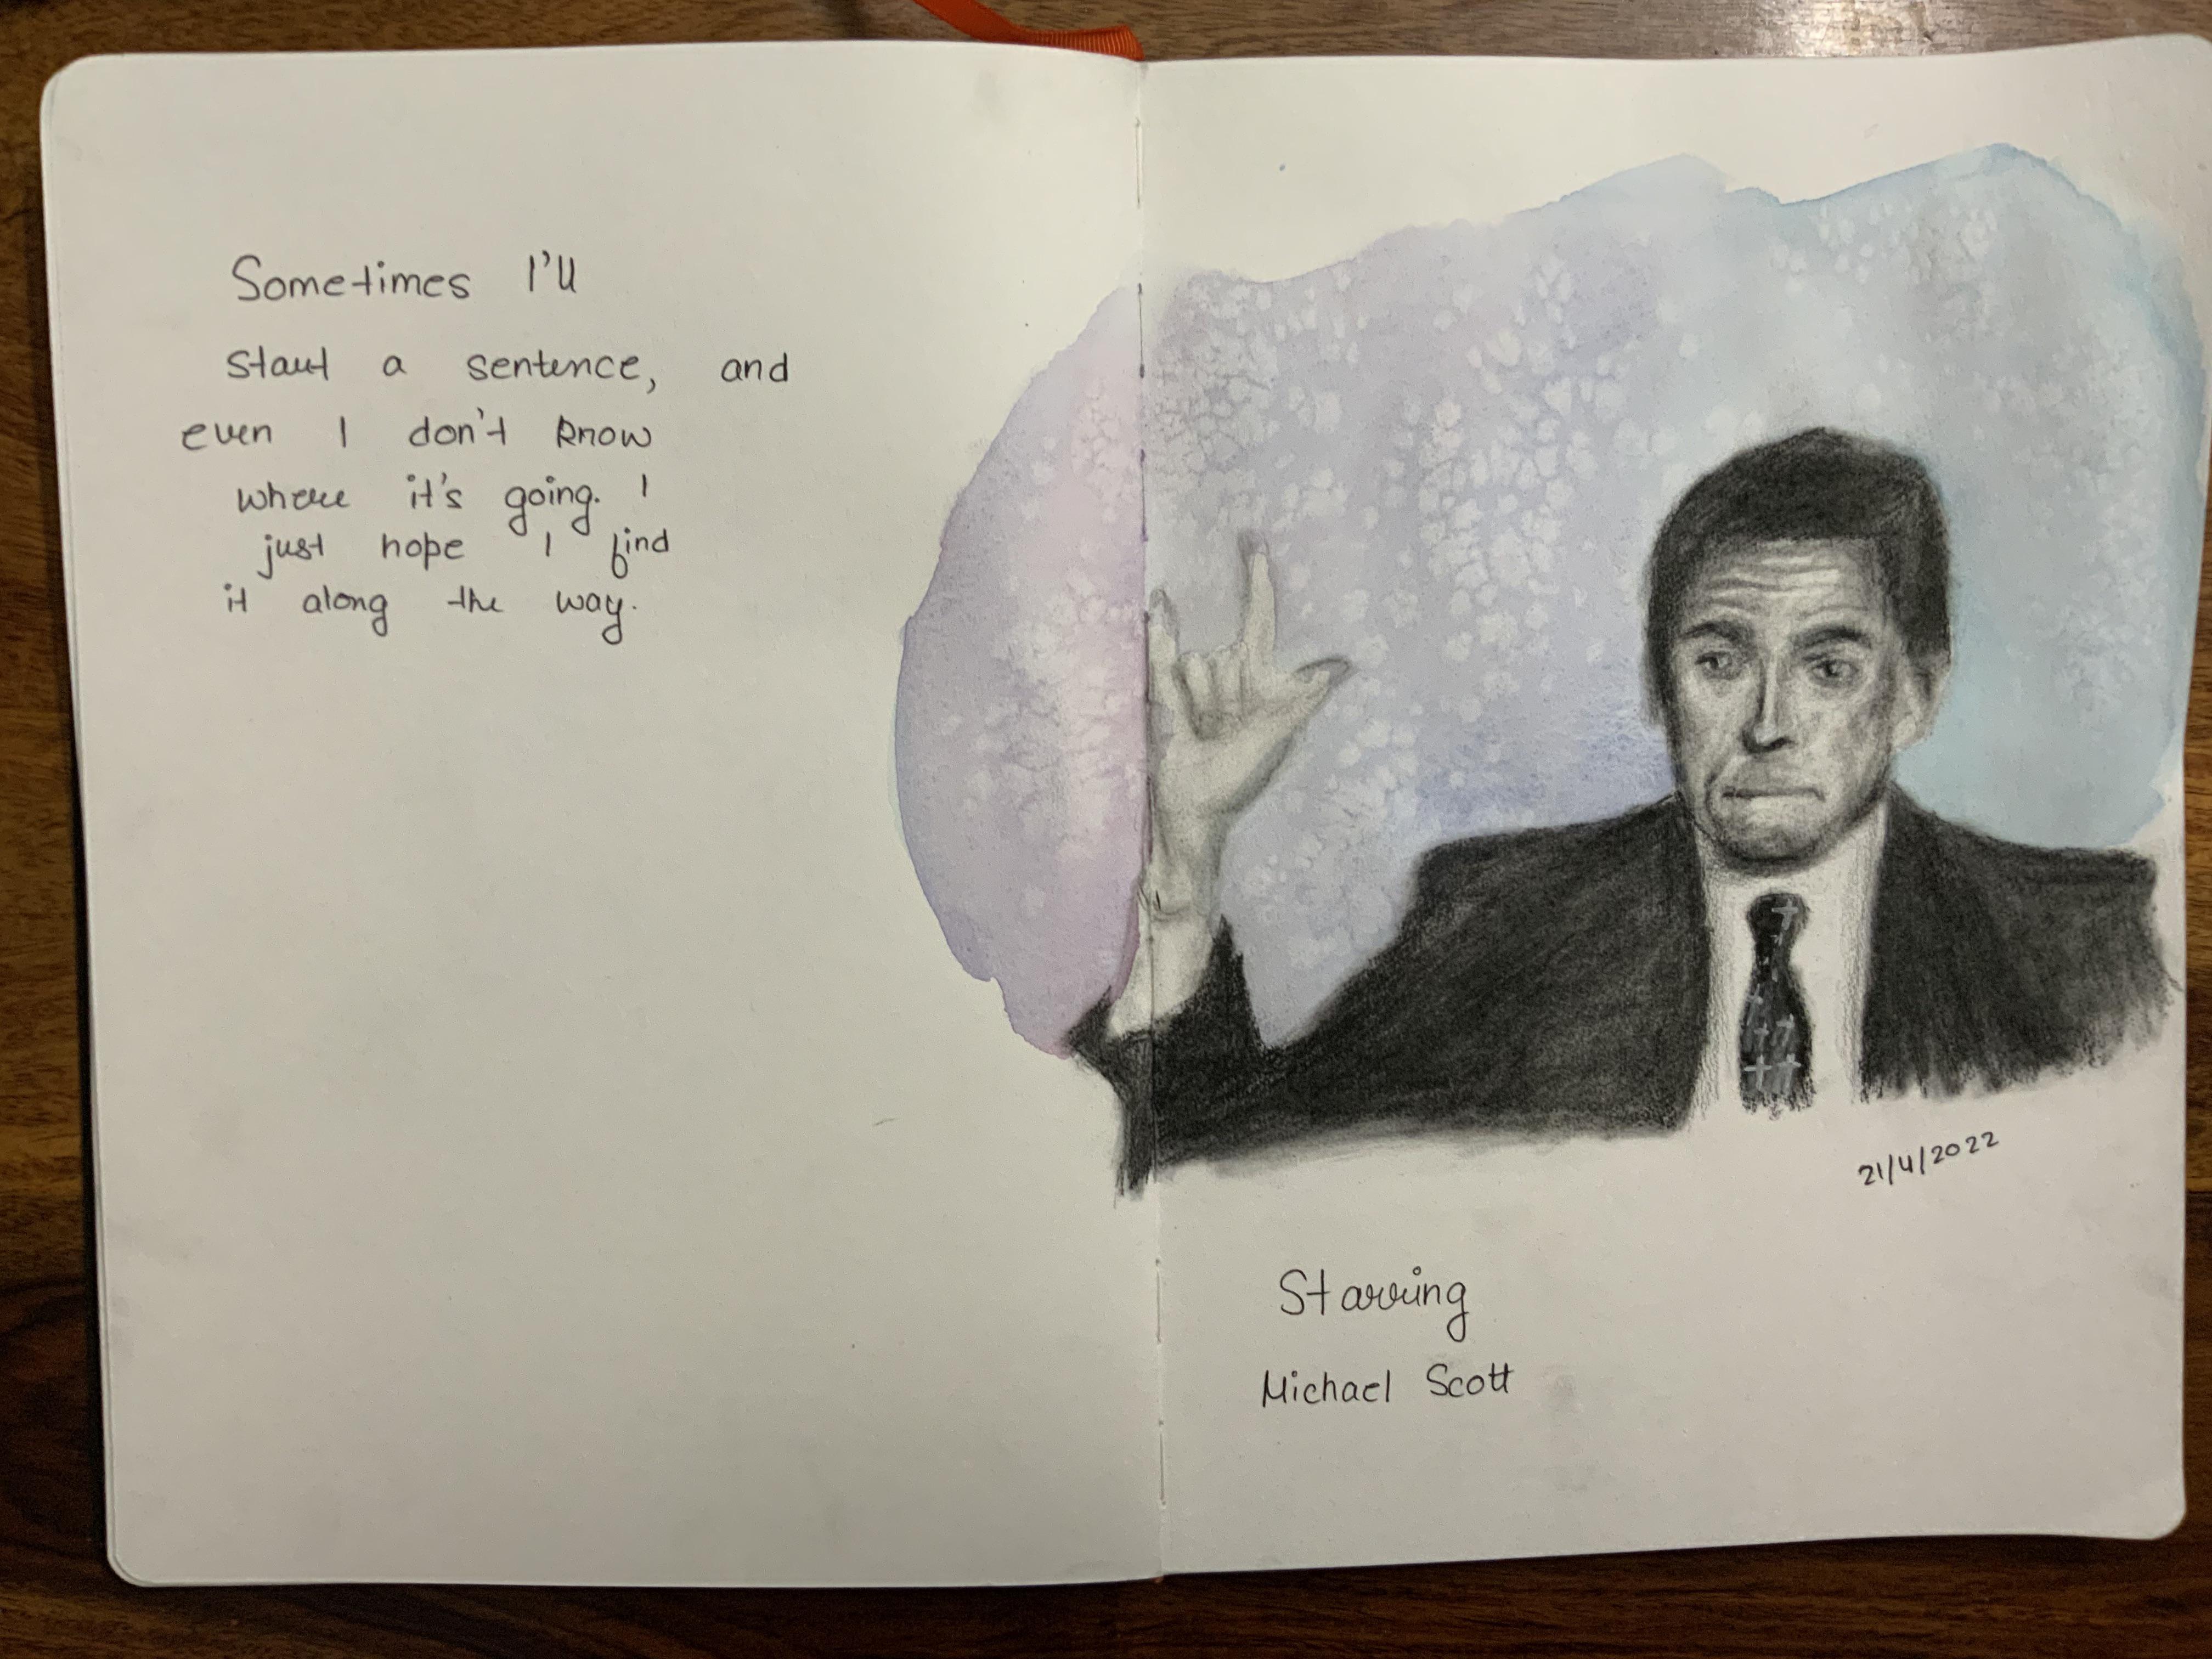 Sometimes I'll
start a sentence, and
even I don't know
where it's going. I
just hope I find
it along the way.
21/4/2022
Starring
Michael Scott